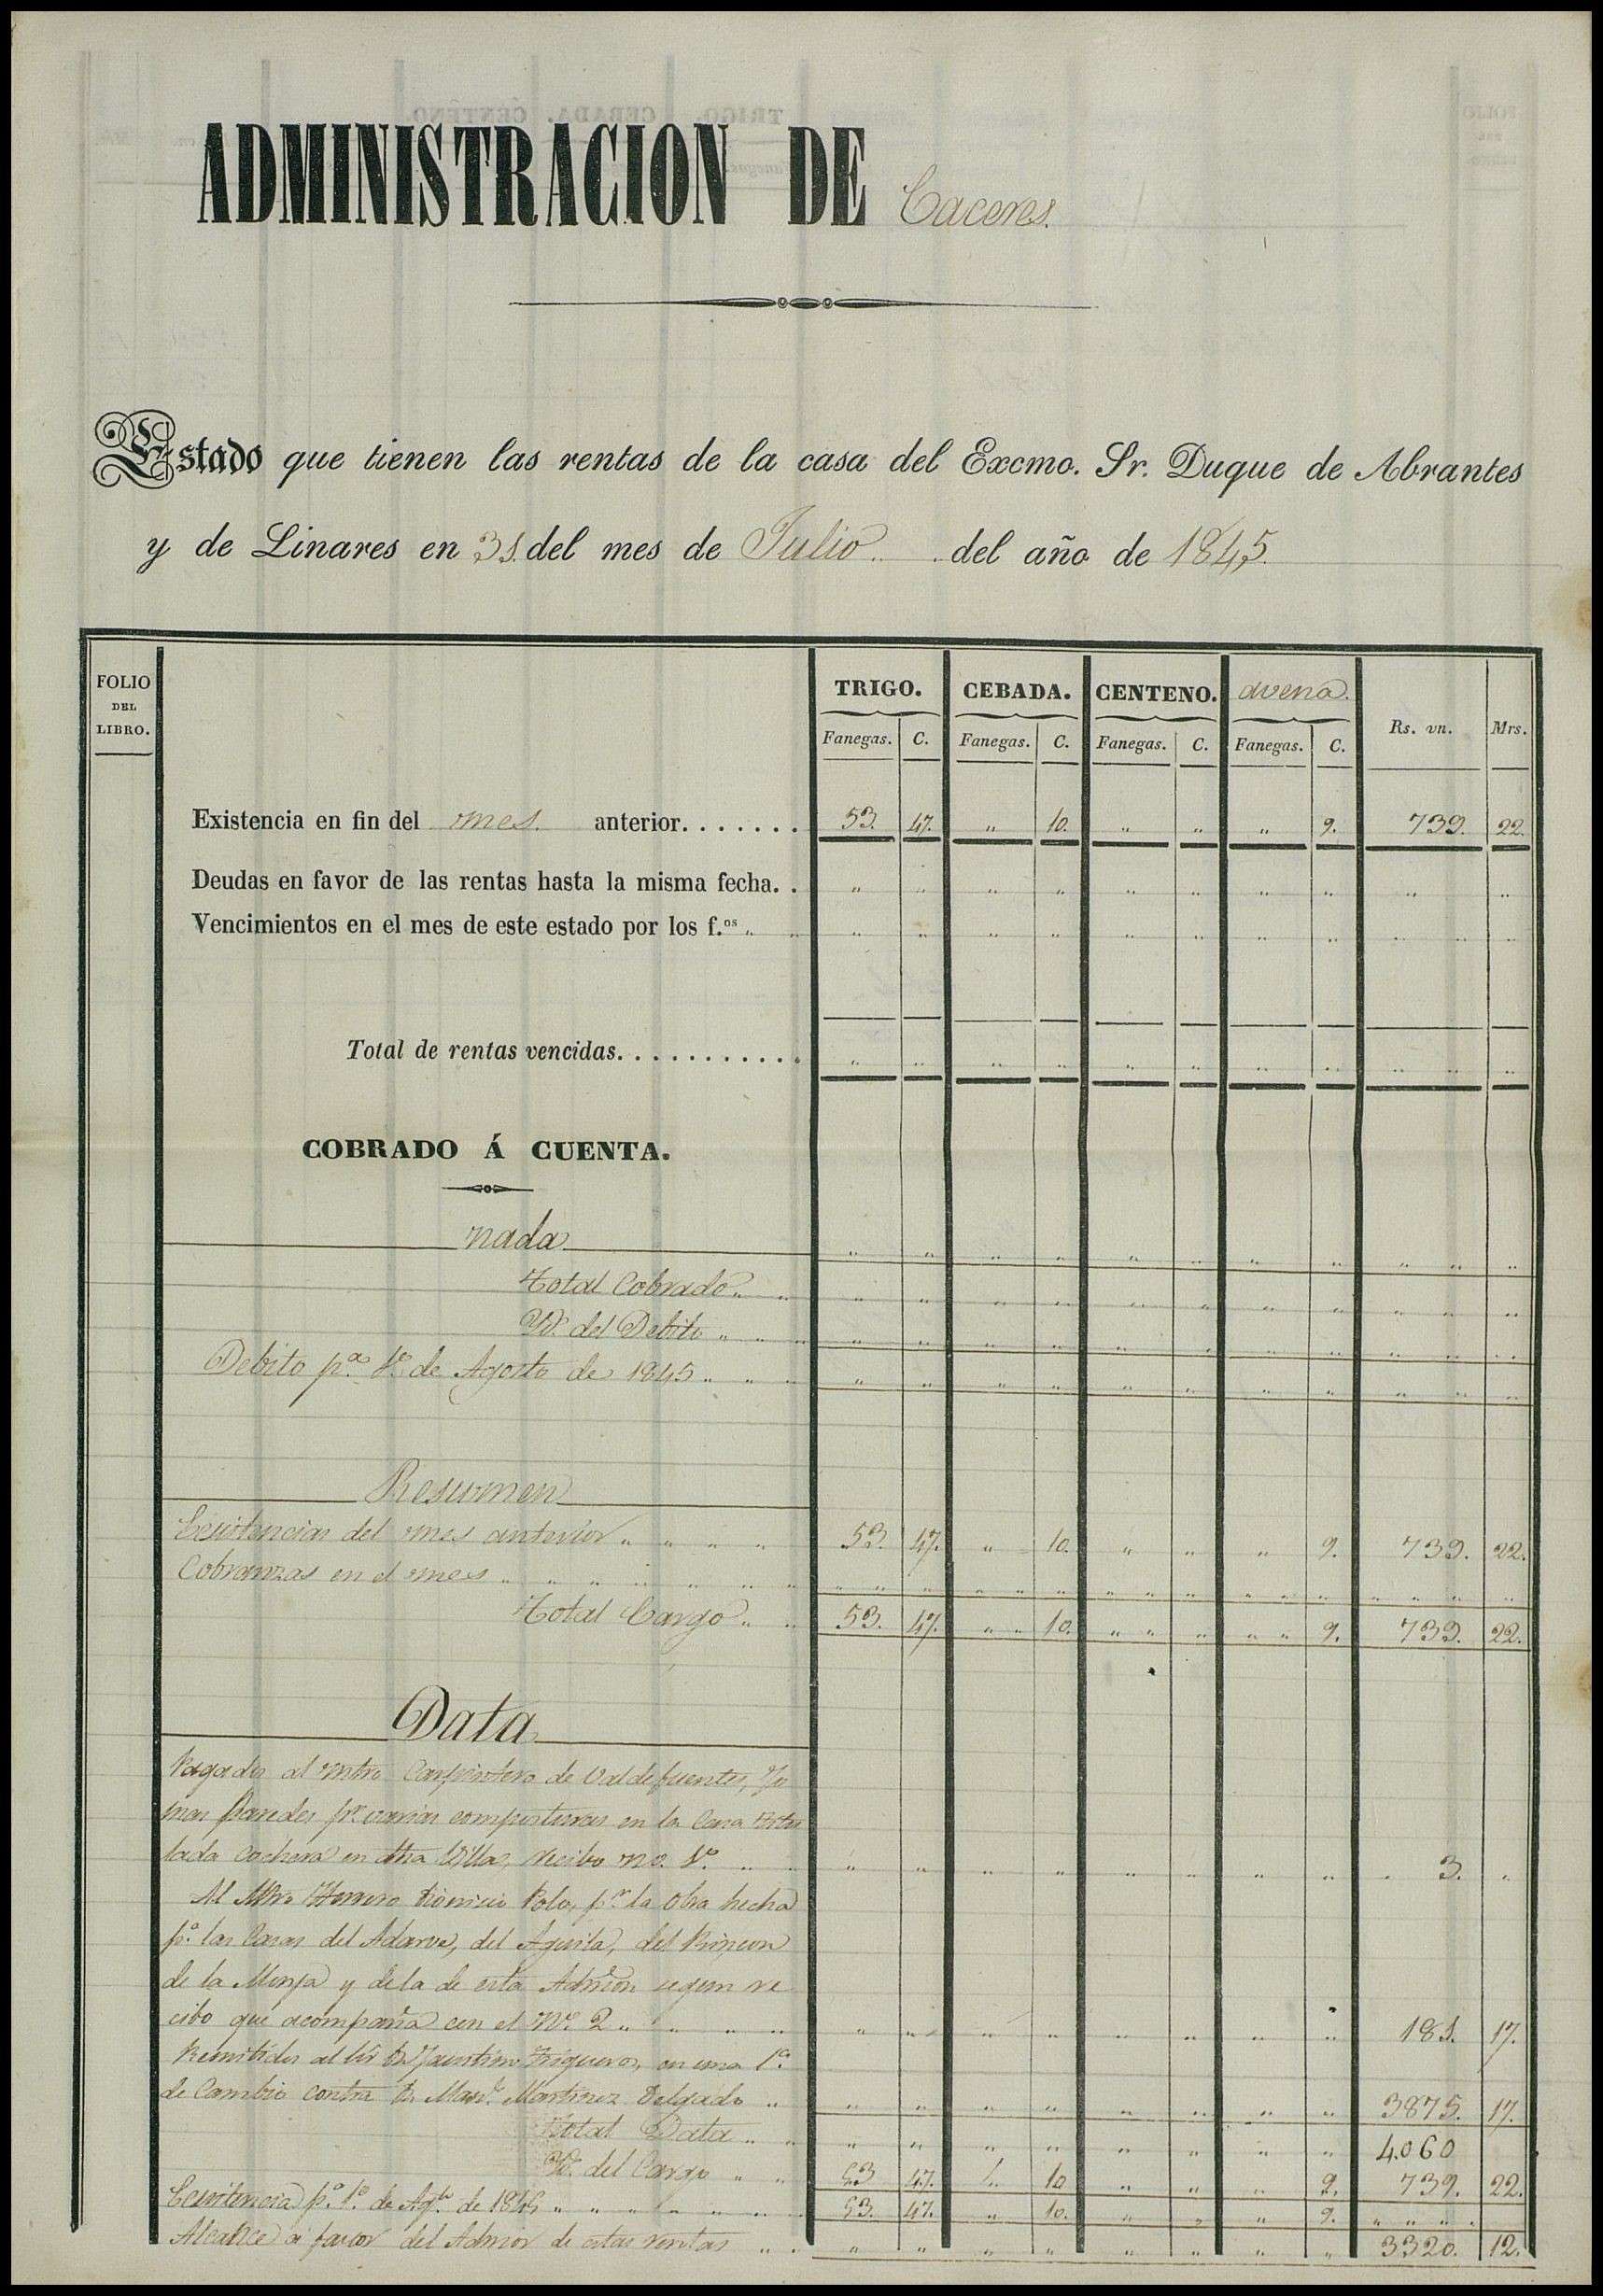 ADMINISTRACION DE Caceres.
Estado que tienen las rentas de la casa del Excmo. Sr. Duque de Abrantes
y de Linares en 31. del mes de Julio del año de 1845.
FOLIO DEL LIBRO. TRIGO. CEBADA. CENTENO. avena.
Fanegas. C. Fanegas. C. Fanegas. C. Fanegas. C. Rs. vn. Mrs.
Existencia en fin del mes. anterior....... 53. 47. " 10. " " " 9. 739. 22.
Deudas en favor de las rentas hasta la misma fecha.. " " " " " " " " " "
Vencimientos en el mes de este estado por los f.os " " " " " " " " " " " " "
Total de rentas vencidas............ " " " " " " " " " " "
COBRADO Á CUENTA.
nada " " " " " " " " " " "
Total Cobrado " " " " " " " " " " " " "
Yd. del Debito " " " " " " " " " " " " " "
Debito p.a 1.o de Agosto de 1845 " " " " " " " " " " " " " "
Resumen
Existencias del mes anterior " " " " 53. 47. " 10. " " " 9. 739. 22.
Cobranzas en el mes " " " " " " " " " " " " " " " " " " " "
Total Cargo " " 53. 47. " " 10. " " " " " 9. 739. 22.
Data
Pagados al mtro Carpintero de Valdefuentes,
Paredes p.r varias composturas en la Casa titu
lada cochera en dha Villa, recibo no. 1.o " " " " " " " " " " 3. "
Al Mtro Herrero Dionicio Polo, p.r la obra hecha
p.a las Casas del Adarve, del Aguila, del Rincon
de la Monja y de la de esta Admon segun re
cibo que acompaña con el N.o 2 " " " " " " " " " " " " 181. 17.
Remitidos al Sr. D. Faustino Trigueros, en una l.a
de Cambio contra D. Man.l Martinez Delgado " " " " " " " " " 3875. 17.
Total Data " " " " " " " " " " 4.060
Yd. del Cargo " " 53 47. " 10 " " " 9. 739. 22.
Existencia p.a 1.o de Ag.to de 1845 " " " " " " 53. 47. " 10. " " " 9. " " " "
Alcance a favor del Admor de estas rentas " " " " " " " " " " 3320. 12.